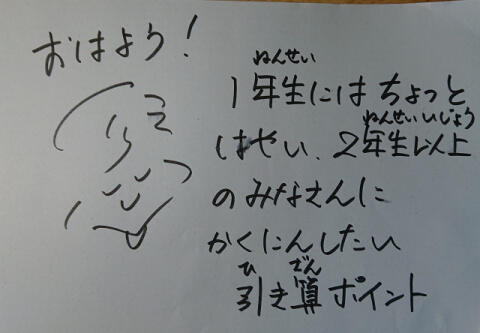 おはよう!
ねんせい
1年生にはちょっと
ねんせいいじょう
はやい、2年生以上
のみなさんに
かくにんしたい
ひ ざん
引き算ポイント